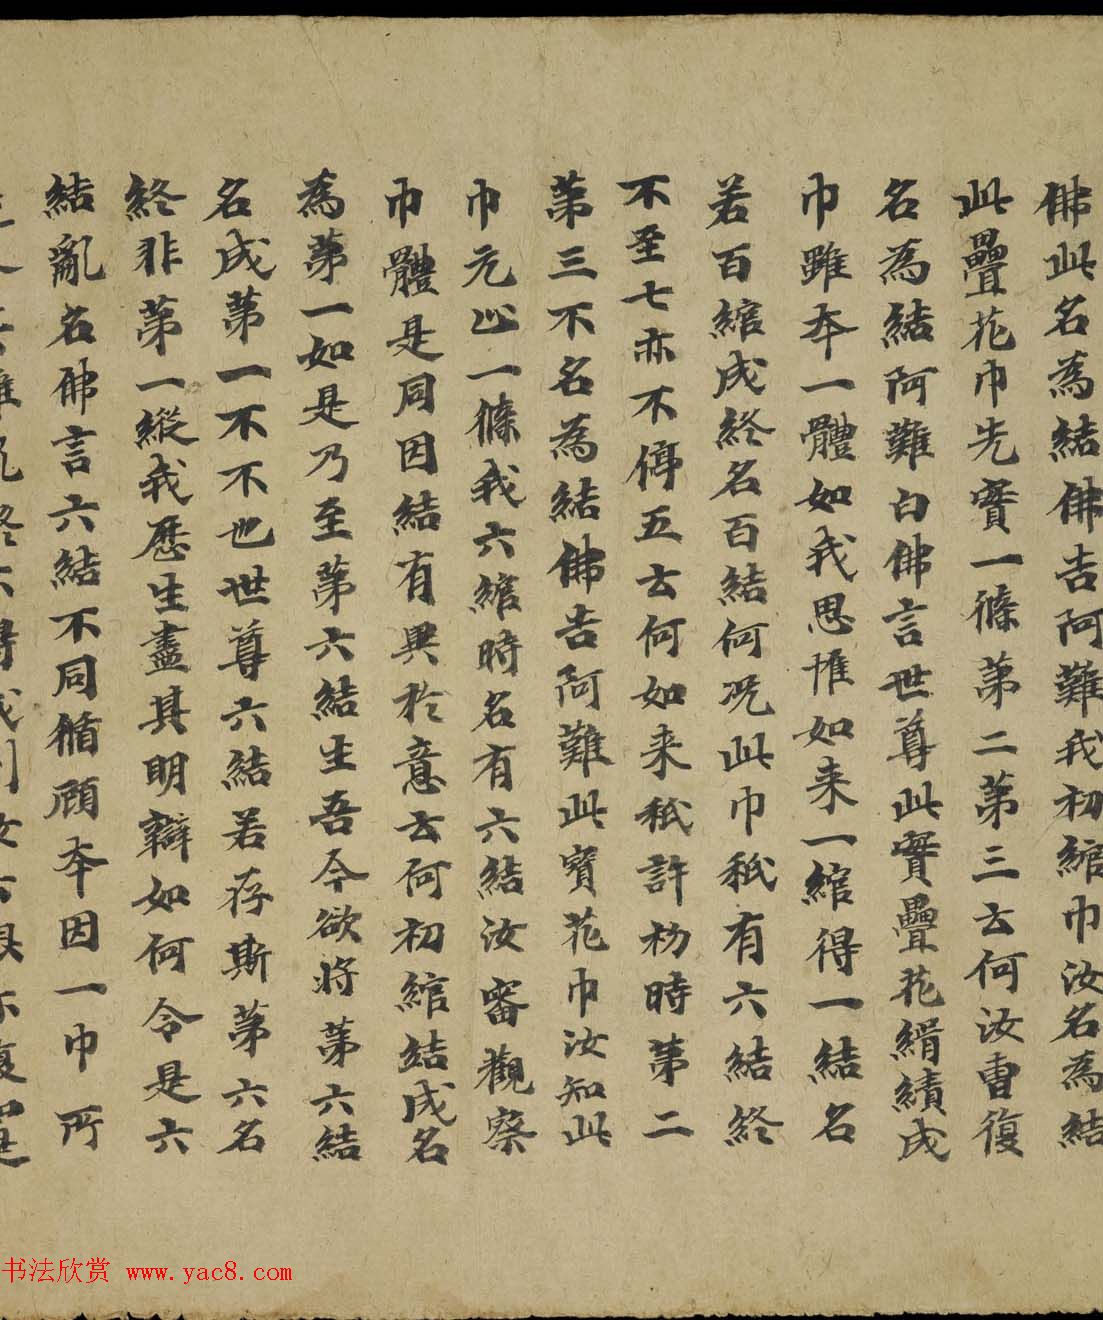 佛此名為結佛告阿難我初綰巾汝名為結
此疊花巾先實一條第二第三云何汝曹復
名為結阿難白佛言世尊此寶疊花緝績成
巾雖本一體如我思惟如来一綰得一結名
若百綰成終名百結何况此巾秖有六結終
不至七亦不停五云何如来秖許初時第二
第三不名為結佛告阿難此寶花巾汝知此
巾元止一條我六綰時名有六結汝審觀察
巾體是同因結有異於意云何初綰結成名
為第一如是乃至第六結生吾今欲将第六結
名成第一不不也世尊六結若存斯第六名
終非第一縱我歷生盡其明辯如何令是六
結亂名佛言六結不同循顧本因一巾所
书法欣赏 www.yac8.com